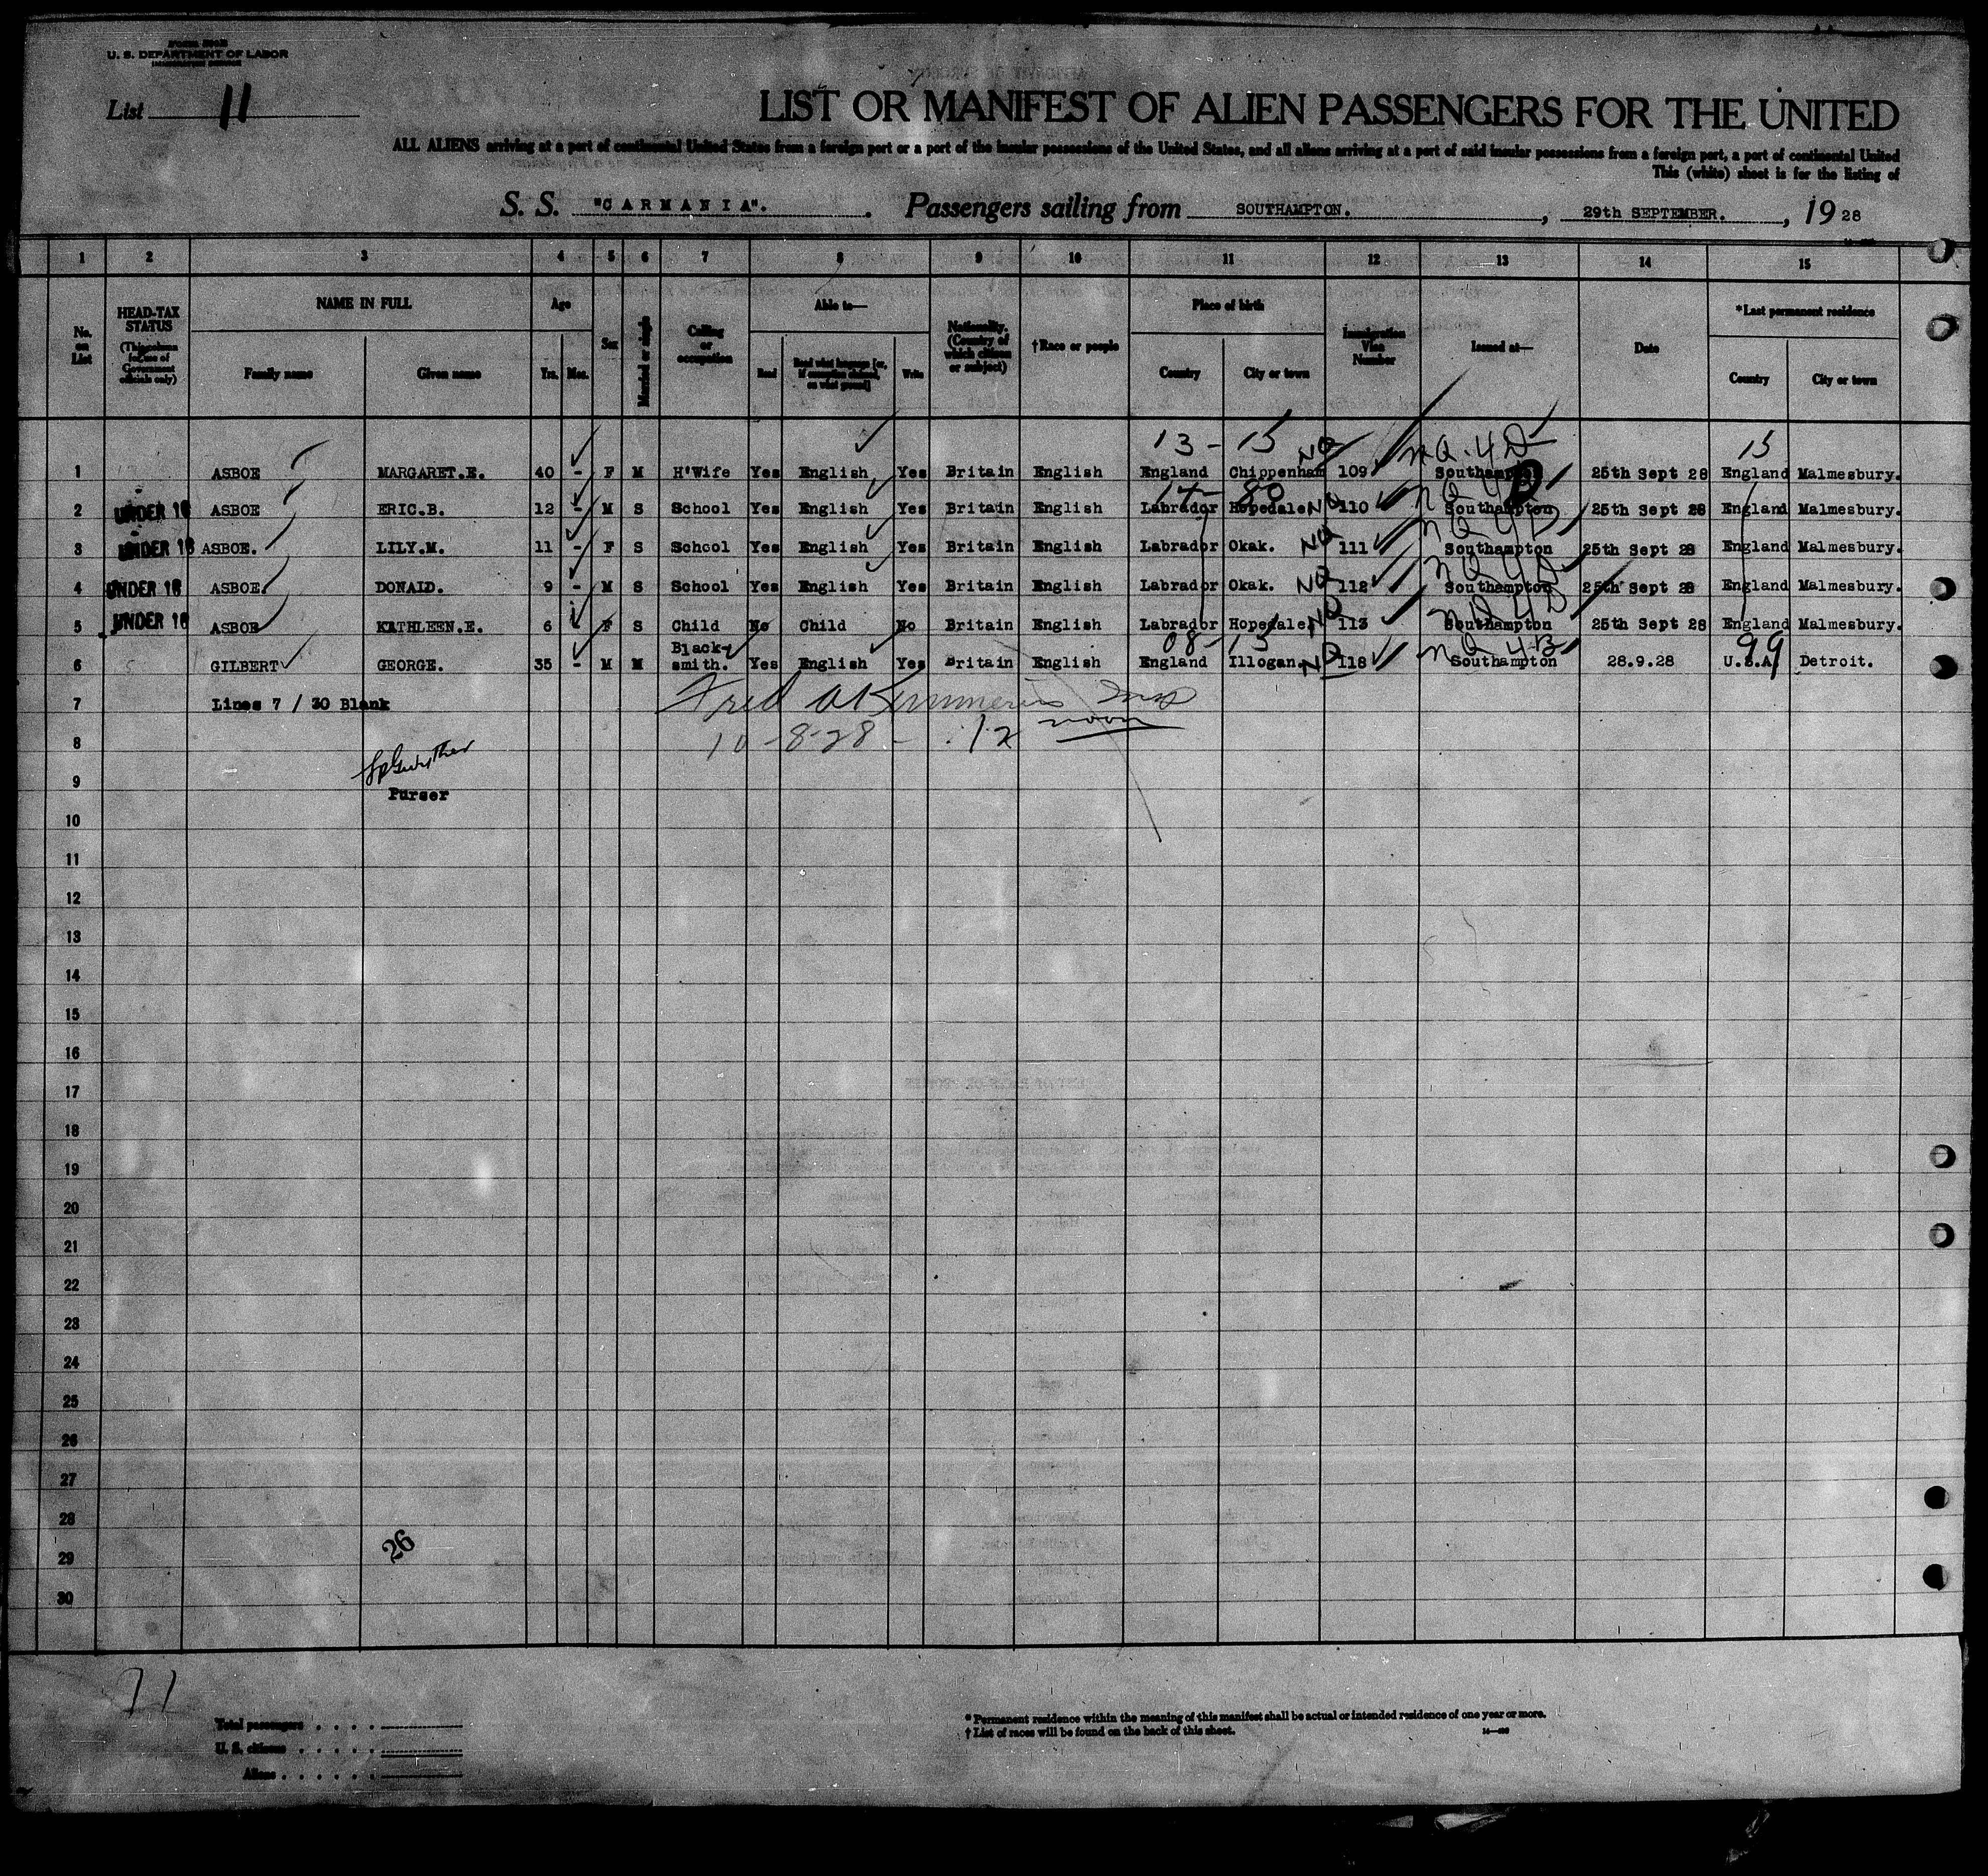 U. S. DEPARTMENT OF LABOR
List 11
LIST OR MANIFEST OF ALIEN PASSENGERS FOR THE UNITED
ALL ALIENS arriving at a port of continental United States from a foreign port or a port of the insular possessions of the United States, and all aliens arriving at a port of said insular possessions from a foreign port, a port of continental United
This (white) sheet is for the listing of
S. S. "CARMANIA". Passengers sailing from SOUTHAMPTON. , 29th SEPTEMBER. , 19 28
1 2 3 4 5 6 7 8 9 10 11 12 13 14 15
No. on List
HEAD-TAX STATUS (This column for use of Government officials only)
NAME IN FULL
Family name Given name
Age
Yrs. Mos.
Sex
Married or single
Calling or occupation
Able to—
Read Read what language [or, if exemption claimed, on what ground] Write
Nationality. (Country of which citizen or subject)
†Race or people
Place of birth
Country City or town
Immigration Visa Number
Issued at—
Date
*Last permanent residence
Country City or town
13 - 15 NQ NQ 4D 15
1 ASBOE MARGARET.E. 40 - F M H'Wife Yes English Yes Britain English England Chippenham 109 Southampton 25th Sept 28 England Malmesbury.
14 - 80 NQ NQ 4D
2 UNDER 16 ASBOE ERIC.B. 12 - M S School Yes English Yes Britain English Labrador Hopedale 110 Southampton 25th Sept 28 England Malmesbury.
NQ NQ 4D
3 UNDER 16 ASBOE. LILY.M. 11 - F S School Yes English Yes Britain English Labrador Okak. 111 Southampton 25th Sept 28 England Malmesbury.
NQ NQ 4D
4 UNDER 16 ASBOE. DONALD. 9 - M S School Yes English Yes Britain English Labrador Okak. 112 Southampton 25th Sept 28 England Malmesbury.
NQ NQ 4D
5 UNDER 16 ASBOE KATHLEEN.E. 6 F S Child No Child No Britain English Labrador Hopedale 113 Southampton 25th Sept 28 England Malmesbury.
08 - 15 NQ NQ 4B 99
6 GILBERT GEORGE. 35 - M M Black-smith. Yes English Yes Britain English England Illogan. 118 Southampton 28.9.28 U.S.A. Detroit.
7 Lines 7 / 30 Blank
Fred
8 10-8-28 - 12 noon
9
Purser
10
11
12
13
14
15
16
17
18
19
20
21
22
23
24
25
26
27
28
26
29
30
71
Total passengers
U. S. citizens
Aliens
* Permanent residence within the meaning of this manifest shall be actual or intended residence of one year or more.
† List of races will be found on the back of this sheet.